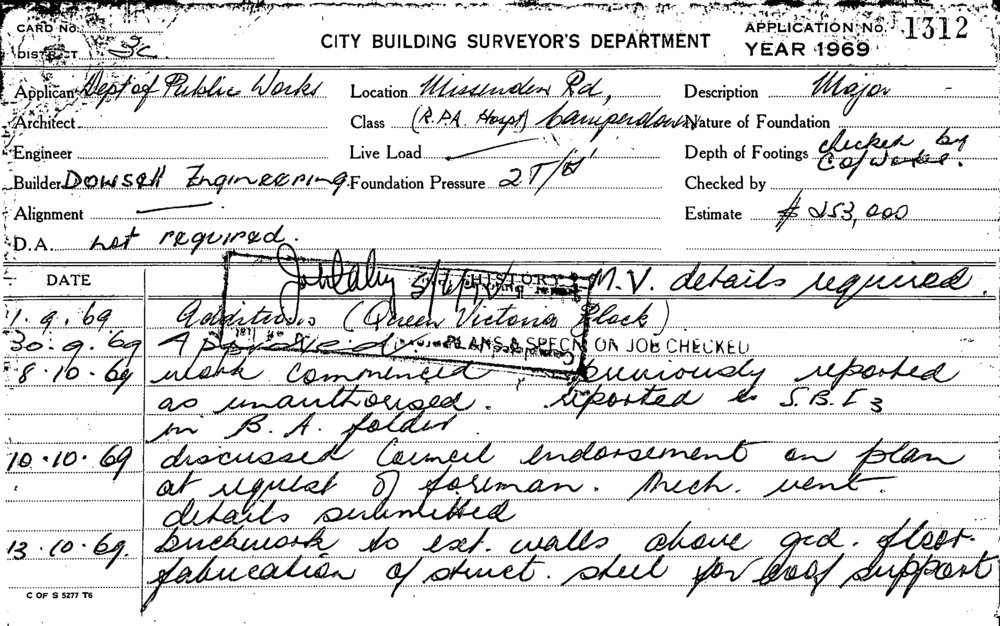 CARD No.
CITY BUILDING SURVEYOR'S DEPARTMENT
APPLICATION No. 1312
DISTRICT 3c
YEAR 1969
Applicant Dept of Public Works Location Missenden Rd, Description Major
Architect Class (R.P.A. Hospt) Camperdown Nature of Foundation
Engineer Live Load Depth of Footings checked by
Builder Dowsett Engineering. Foundation Pressure 2 T/ Checked by
Alignment Estimate $ 253,000
D.A. not required.
DATE HISTORY M.V. details required.
1.9.69 Additions (Queen Victoria Block)
30.9.69 Approved. PLANS & SPECN ON JOB CHECKED
8.10.69 work commenced previously reported
as unauthorised. reported to S.B.I 3
in B.A. folder
10.10.69 discussed Council endorsement on plan
at request of foreman. Mech. vent.
details submitted
13.10.69. brickwork to ext. walls above grd. floor.
fabrication of struct. steel for roof support
C OF S 5277 T6